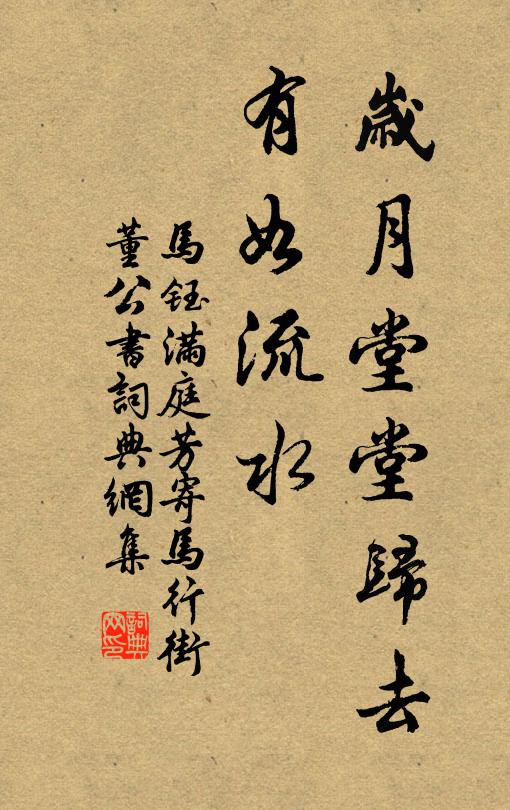 歲月堂堂歸去
有如流水
馬鈺滿庭芳寄馬行街
董公書詞典網集
詞典網印